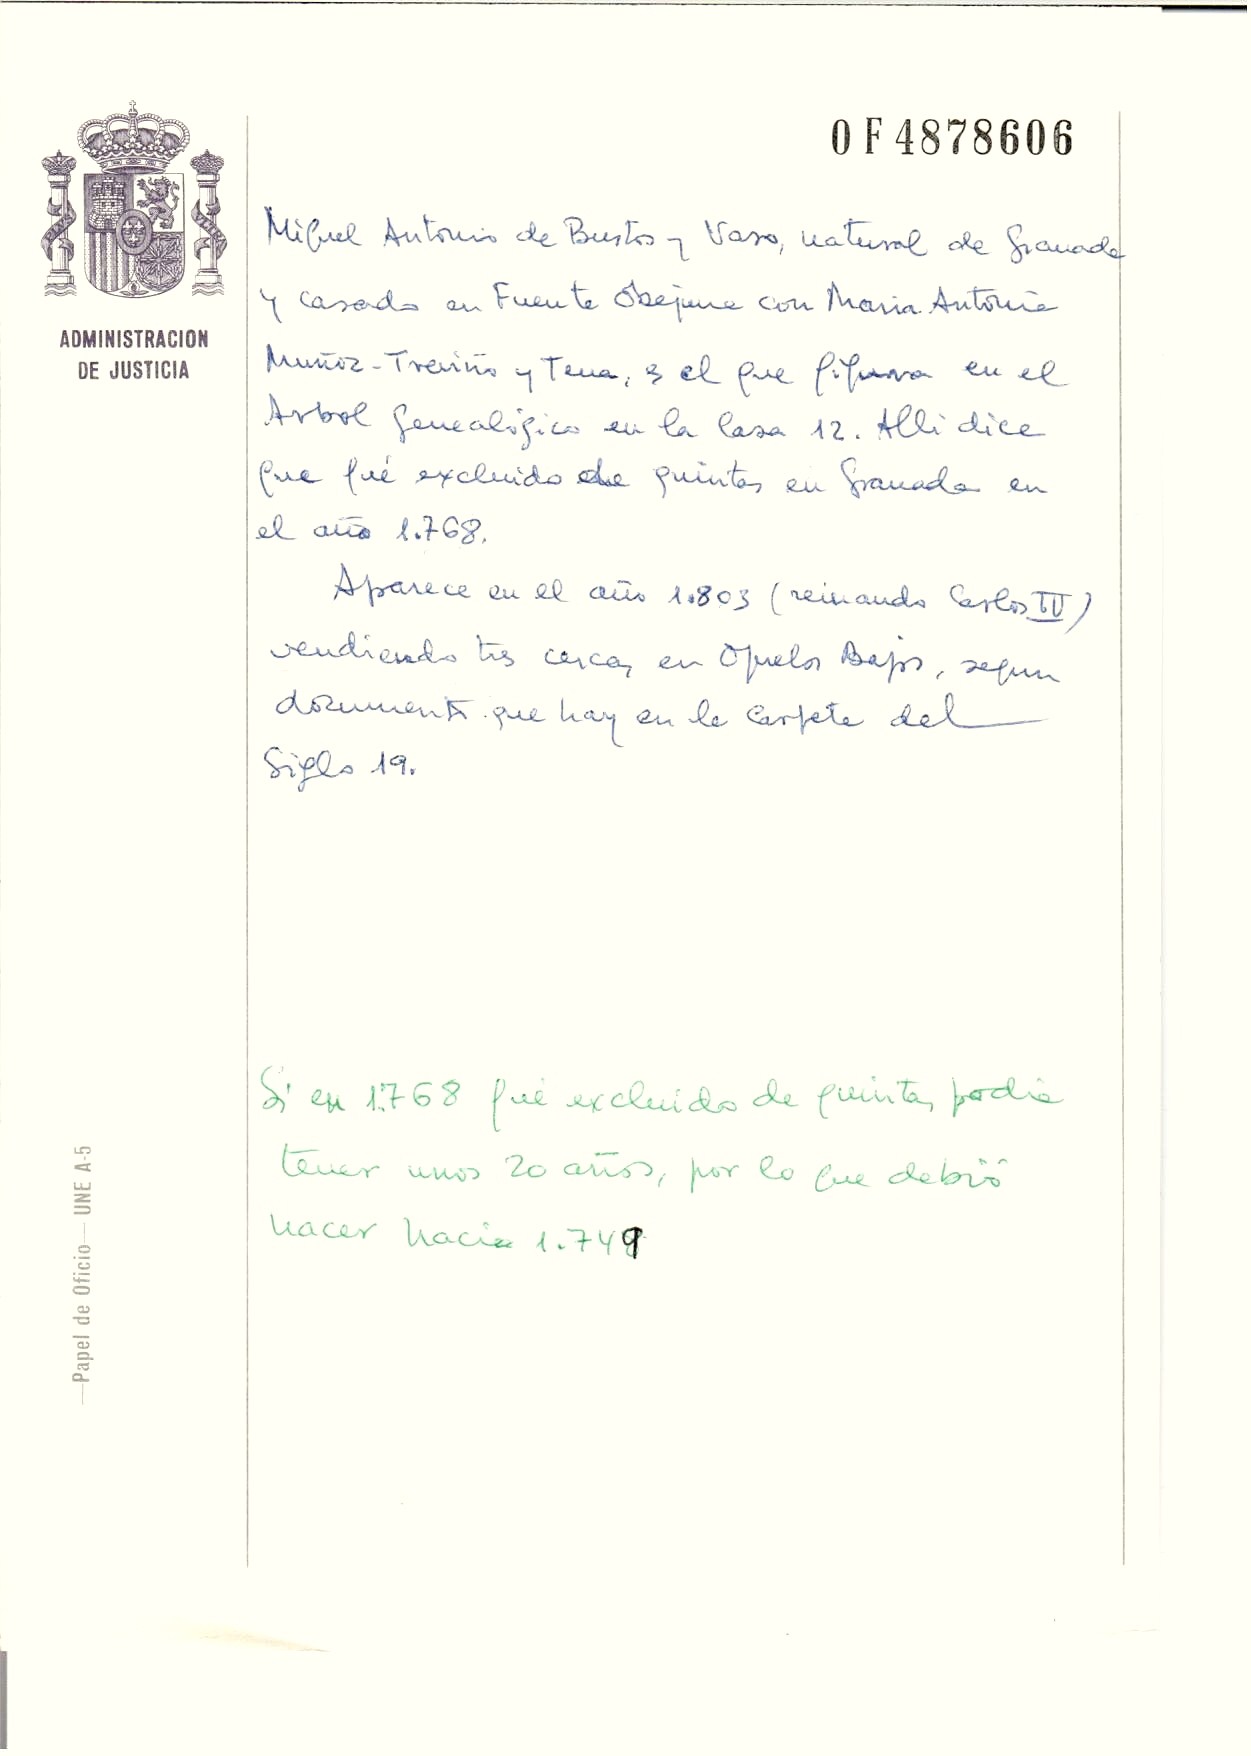 0F4878606
PLVS
VLTRA
ADMINISTRACION
DE JUSTICIA
Miguel Antonio de Bustos y Vaso, natural de Granada
y casado en Fuente Obejuna con Maria Antonia
Muñoz-Treviño y Tena, es el que figura en el
Arbol Genealógico en la Casa 12. Alli dice
que fué excluido de quintas en Granada en
el año 1.768.
Aparece en el año 1.803 (reinando Carlos IV)
vendiendo tres cercas en Ojuelos Bajos, segun
documento que hay en la Carpeta del
Siglo 19.
Si en 1.768 fué excluido de quintas, podia
tener unos 20 años, por lo que debió
nacer hacia 1.749
—Papel de Oficio— UNE A-5